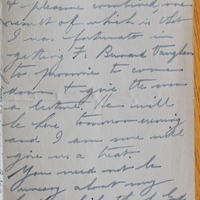 & please
result of which is that
I was fortunate in
getting Fr. Bernard Vaughan
to promise to come
down & give the men
a lecture. He will
be here tomorrow evening
and I am sure will
give us a treat.
You need not be
uneasy about my